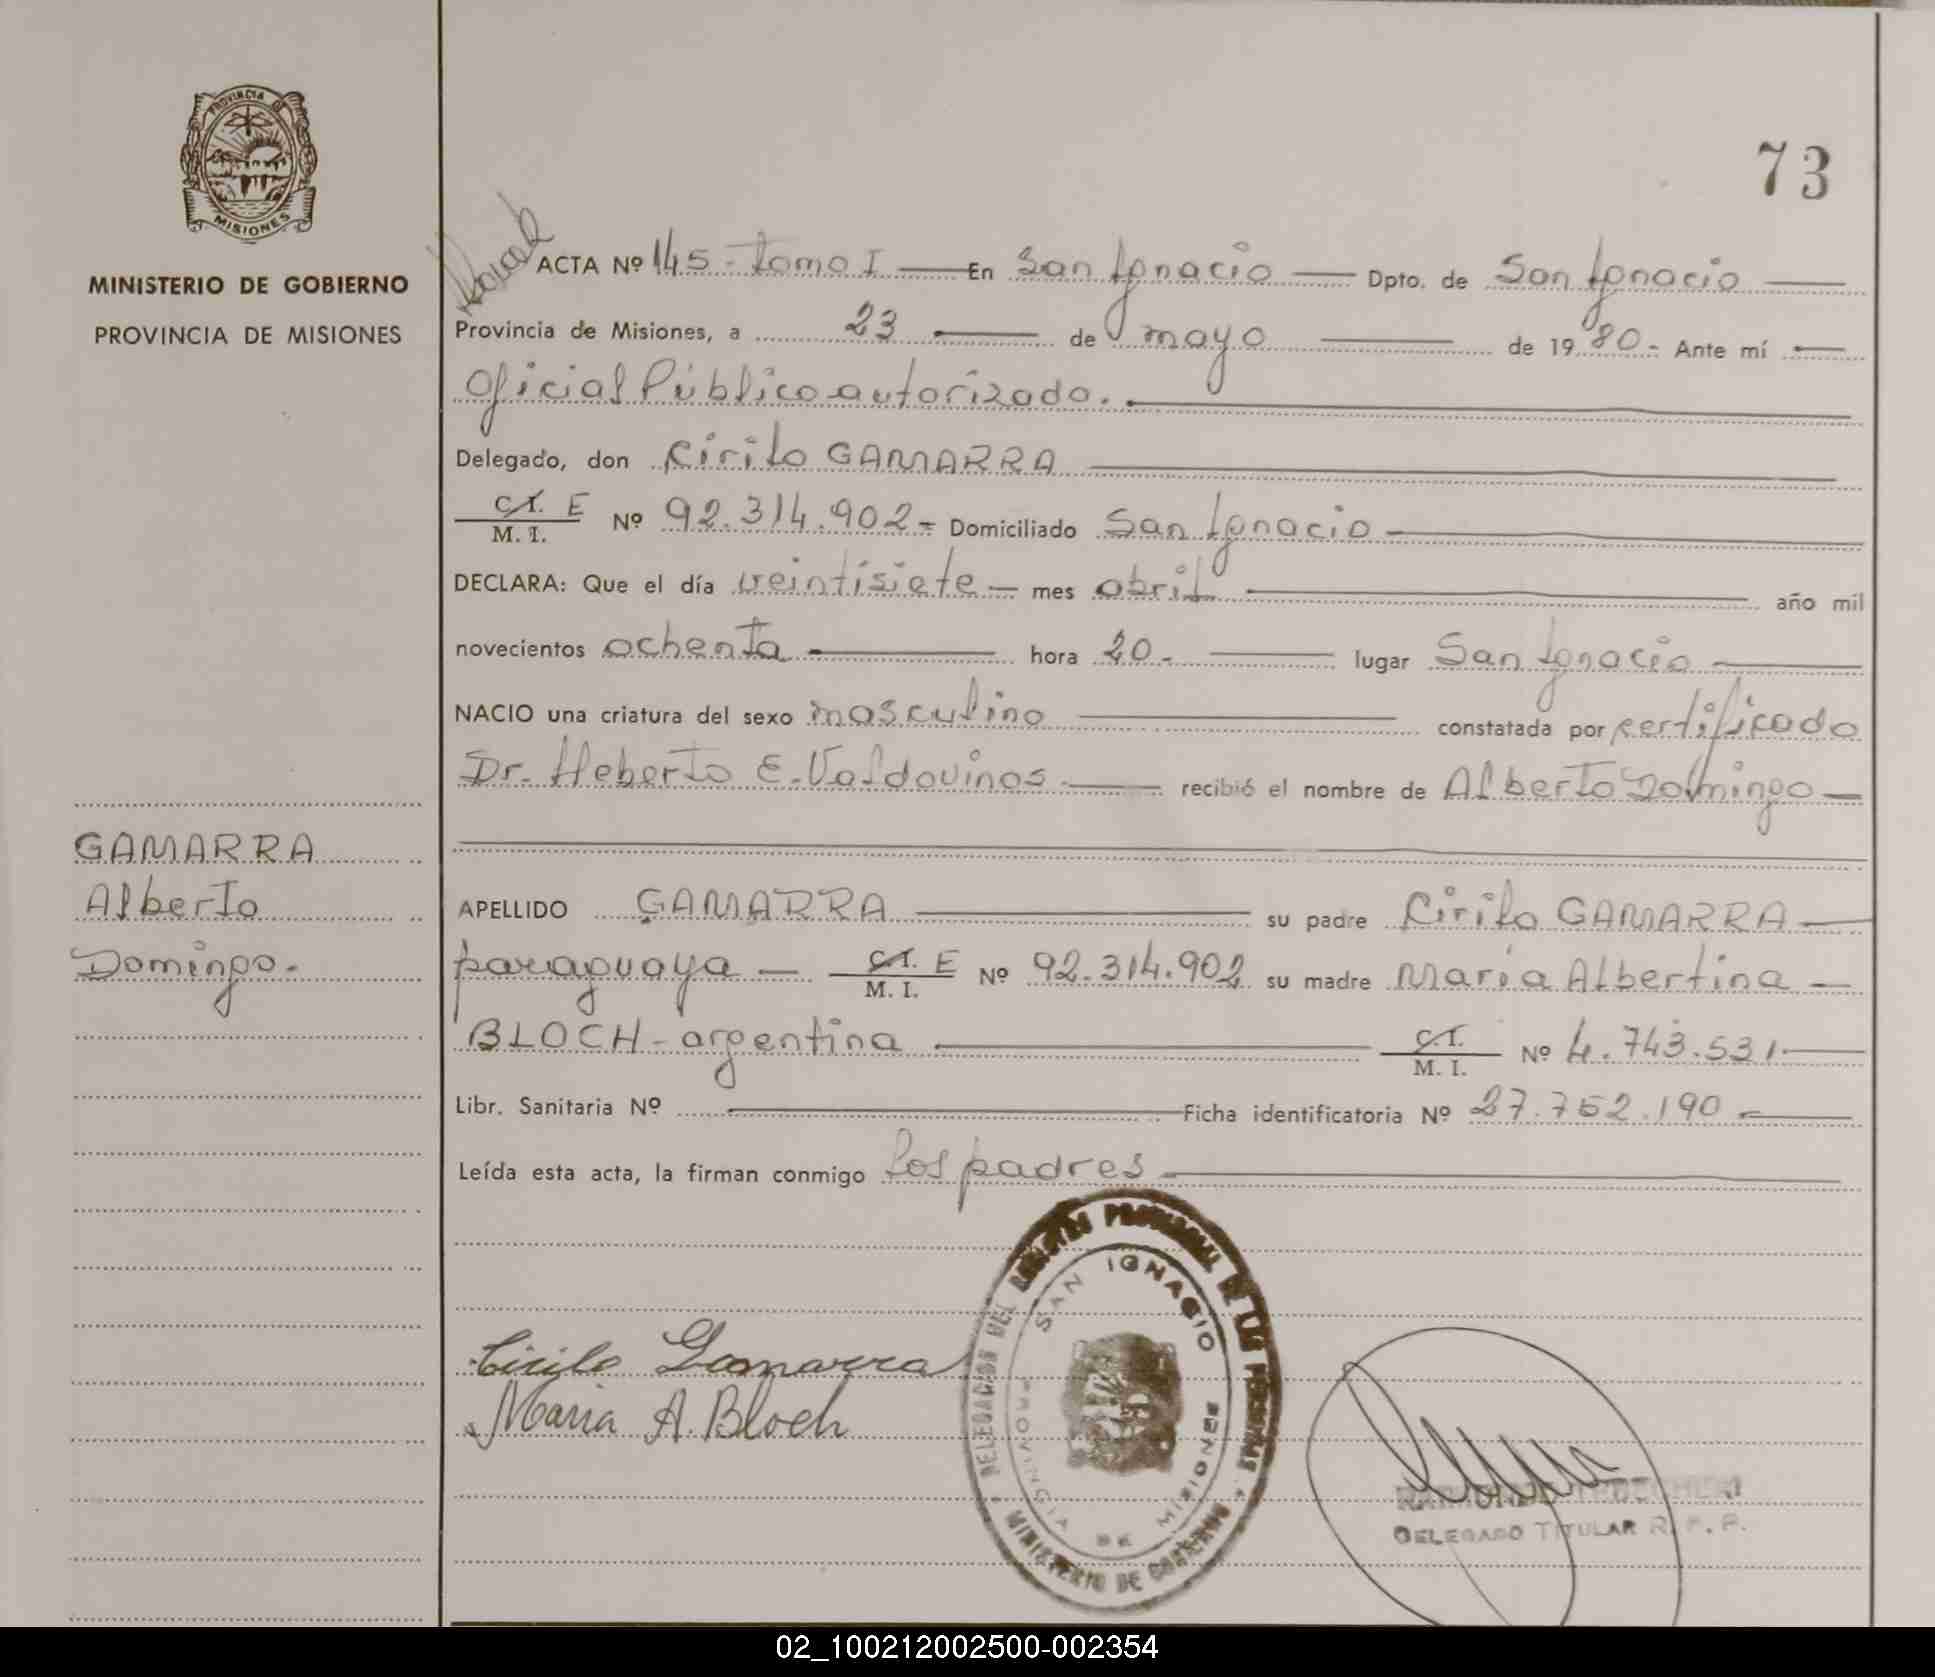 73
PROVINCIA DE
MISIONES
MINISTERIO DE GOBIERNO
PROVINCIA DE MISIONES
GAMARRA
Alberto
Domingo.
ACTA Nº 145 - Tomo I — En San Ignacio — Dpto. de San Ignacio —
Provincia de Misiones, a 23 — de mayo — de 1980 - Ante mí —
Oficial Público autorizado. —
Delegado, don Cirilo GAMARRA —
C.I. E
M. I. Nº 92.314.902 - Domiciliado San Ignacio —
DECLARA: Que el día veintisiete — mes abril — año mil
novecientos ochenta — hora 20. — lugar San Ignacio —
NACIO una criatura del sexo masculino — constatada por certificado
Dr. Heberto E. Valdovinos — recibió el nombre de Alberto Domingo —
APELLIDO GAMARRA — su padre Cirilo GAMARRA —
paraguaya — C.I. E
M. I. Nº 92.314.902 su madre María Albertina —
BLOCH - argentina — C.I.
M. I. Nº 4.743.531 —
Libr. Sanitaria Nº — Ficha identificatoria Nº 27.752.190 - —
Leída esta acta, la firman conmigo los padres —
DELEGACION DEL REGISTRO PROVINCIAL DE LAS PERSONAS
SAN IGNACIO
PROVINCIA DE MISIONES
MINISTERIO DE GOBIERNO
Cirilo Gamarra
Maria A. Bloch
DELEGADO TITULAR R. P. P.
02_100212002500-002354